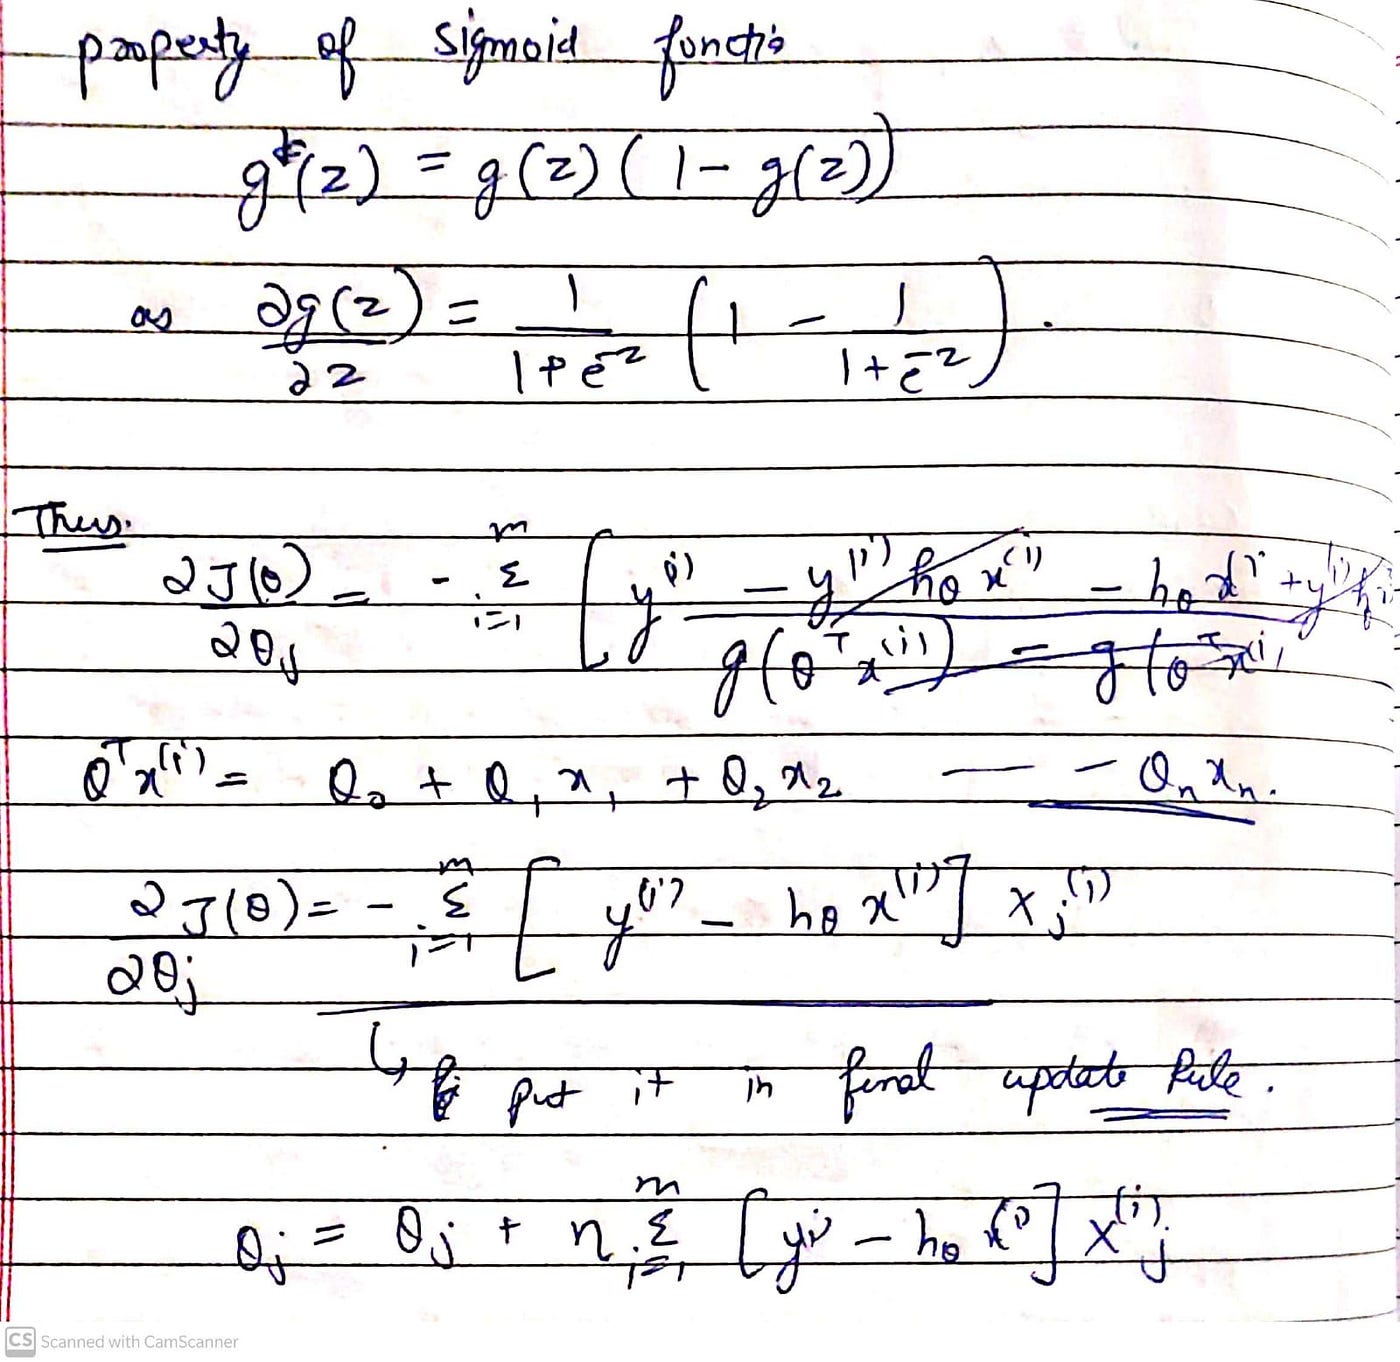 property of sigmoid functio
g'(z) = g(z) (1 - g(z))
as ∂g(z)/∂z = 1/(1+e^-z) (1 - 1/(1+e^-z)).
Thus.
∂J(θ)/∂θj = - Σ_{i=1}^{m} [ y^(i) - y^(i) hθ x^(i) - hθ x^i + y^(i) h
g(θ^T x^(i)) = g(θ^T x^(i)
θ^T x^(i) = θ0 + θ1 x1 + θ2 x2 — - θn xn.
∂J(θ)/∂θj = - Σ_{i=1}^{m} [ y^(i) - hθ x^(i) ] xj^(i)
↳ put it in final update Rule.
θj = θj + n Σ_{i=1}^{m} [ y^i) - hθ x^(i) ] x^(i)j
CS Scanned with CamScanner